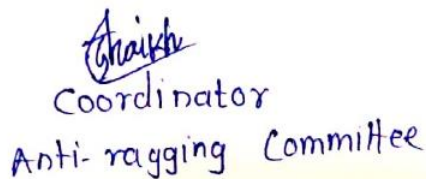 Shaikh
Coordinator
Anti-ragging Committee